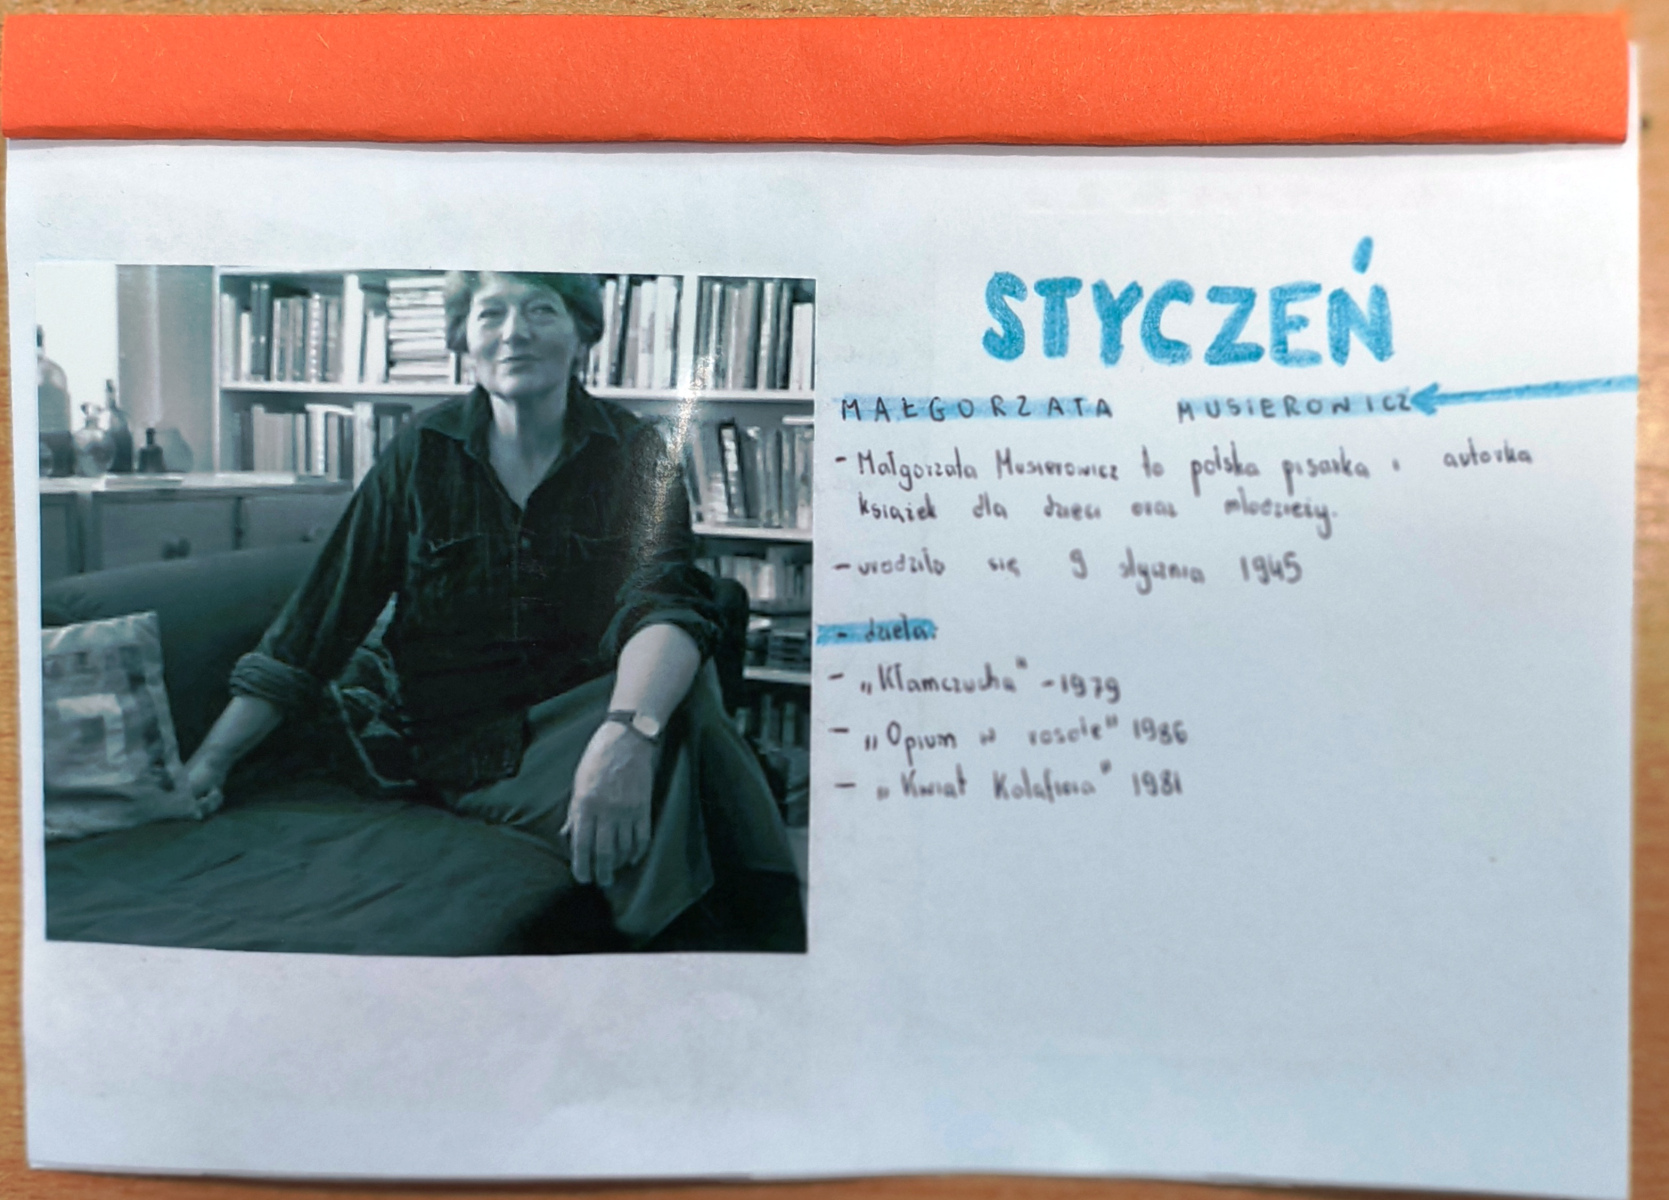 STYCZEŃ
MAŁGORZATA MUSIEROWICZ
- Małgorzata Musierowicz to polska pisarka i autorka
książek dla dzieci oraz młodzieży.
- urodziła się 9 stycznia 1945
- dzieła:
- „Kłamczucha" - 1979
- „Opium w rosole" 1986
- „Kwiat Kalafiora" 1981